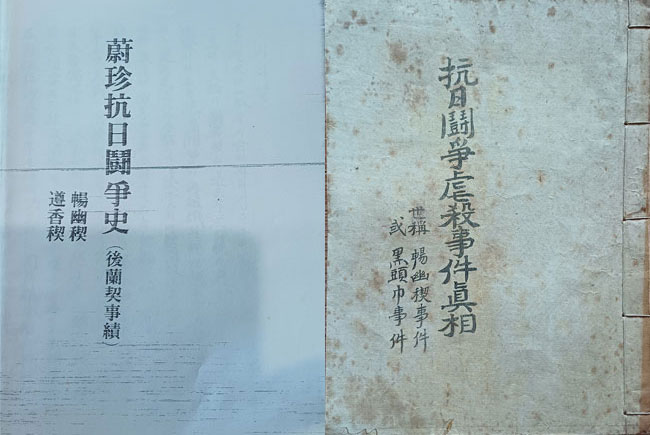 蔚珍抗日鬪爭史(後蘭契事績)
暢幽稧
遵香稧
抗日鬪爭虐殺事件眞相
世稱 暢幽稧事件
或 黑頭巾事件